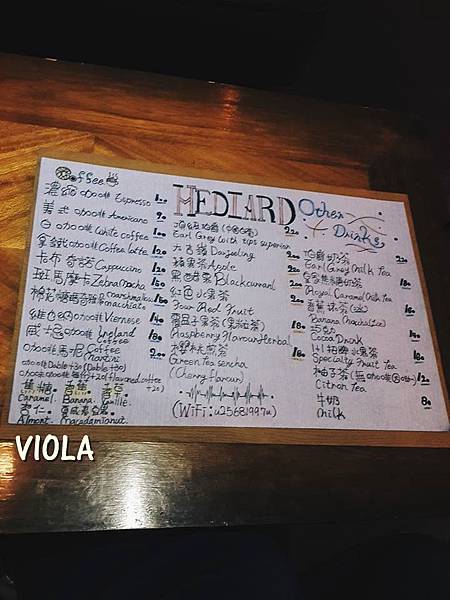 Coffee
濃縮咖啡 Espresso
美式咖啡 Americano 90
白咖啡 White coffee 100
拿鐵咖啡 Coffee latte 120
卡布奇諾 Cappuccino 120
斑馬摩卡 Zebra Mocha 150
棉花糖瑪奇朵 marshmallow macchiato 180
維也納咖啡 Viennese Coffee 140
威士忌咖啡 Ireland Coffee 180
咖啡馬丁尼 Coffee martini 200
咖啡 Double +30 (Double +30)
(Flavoured coffee +20)
焦糖 香蕉 香草
Caramel. Banana. Vanille.
杏仁. 夏威夷豆果
Almont. Macadamianut.
HEDIARD
Earl Grey with tips superior 220
大吉嶺 Darjeeling
蘋果茶 Apple
黑醋栗 Blackcurrant
紅色水果茶
Four Red Fruit
覆盆子果茶 (果粒茶)
Raspberry Flavour Herbal
櫻桃煎茶
Green Tea sencha
(Cherry flavour)
180
(WiFi: u25681997u)
Other Drinks
伯爵奶茶 220
Earl Grey Milk Tea
Royal Caramel Milk Tea
香蕉抹茶 (冰)
Banana Matcha (Ice)
巧克力
Cocoa Drink
招牌水果茶
Specialty Fruit Tea
柚子茶 (無咖啡因)
Citron Tea
牛奶 80
Milk
VIOLA